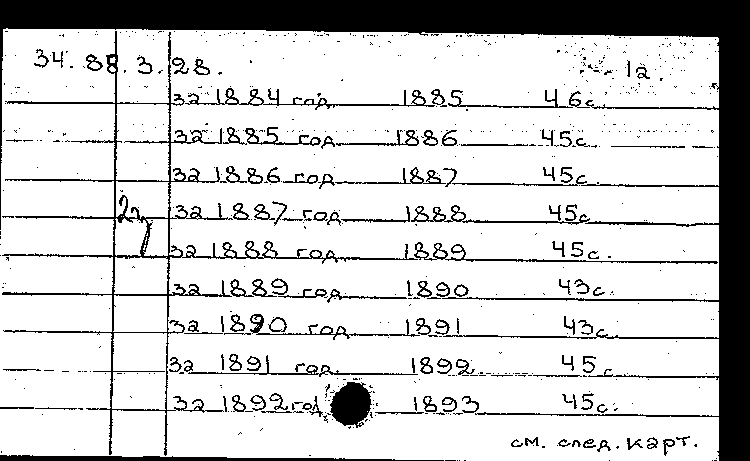 34. 88. 3. 28. 1а.
за 1884 год 1885 46с.
за 1885 год 1886 45с.
за 1886 год 1887 45с.
за 1887 год 1888 45с.
за 1888 год 1889 45с.
за 1889 год 1890 43с.
за 1890 год 1891 43с.
за 1891 год. 1892. 45с.
за 1892 год 1893 45с.
см. след. карт.